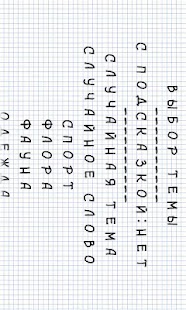 ВЫБОР ТЕМЫ
С ПОДСКАЗКОЙ:НЕТ
СЛУЧАЙНАЯ ТЕМА
СЛУЧАЙНОЕ СЛОВО
СПОРТ
ФЛОРА
ФАУНА
ОДЕЖДА